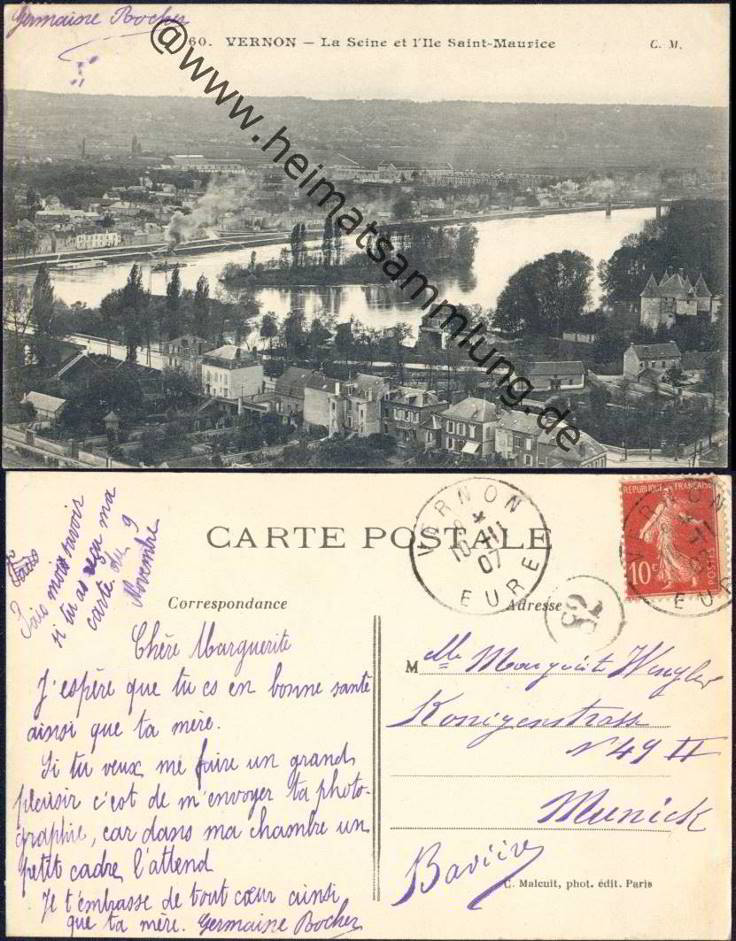 Germaine Rocher
60. VERNON – La Seine et l'Ile Saint-Maurice
C. M.
@www.heimatsammlung.de
Fais moi savoir
si tu as reçu ma
carte du 9
Novembre
CARTE POSTALE
VERNON
10 -11
07
EURE
RÉPUBLIQUE FRANÇAISE
10c
POSTES
VERNON
EURE
Correspondance
Adresse
Chère Marguerite
J'espère que tu es en bonne santé
ainsi que ta mère.
Si tu veux me faire un grand
plaisir c'est de m'envoyer ta photo-
graphie, car dans ma chambre un
petit cadre l'attend
Je t'embrasse de tout cœur ainsi
que ta mère. Germaine Rocher
Mlle Marguerite
N° 49 II
Munick
Bavière
C. Malcuit, phot. édit. Paris